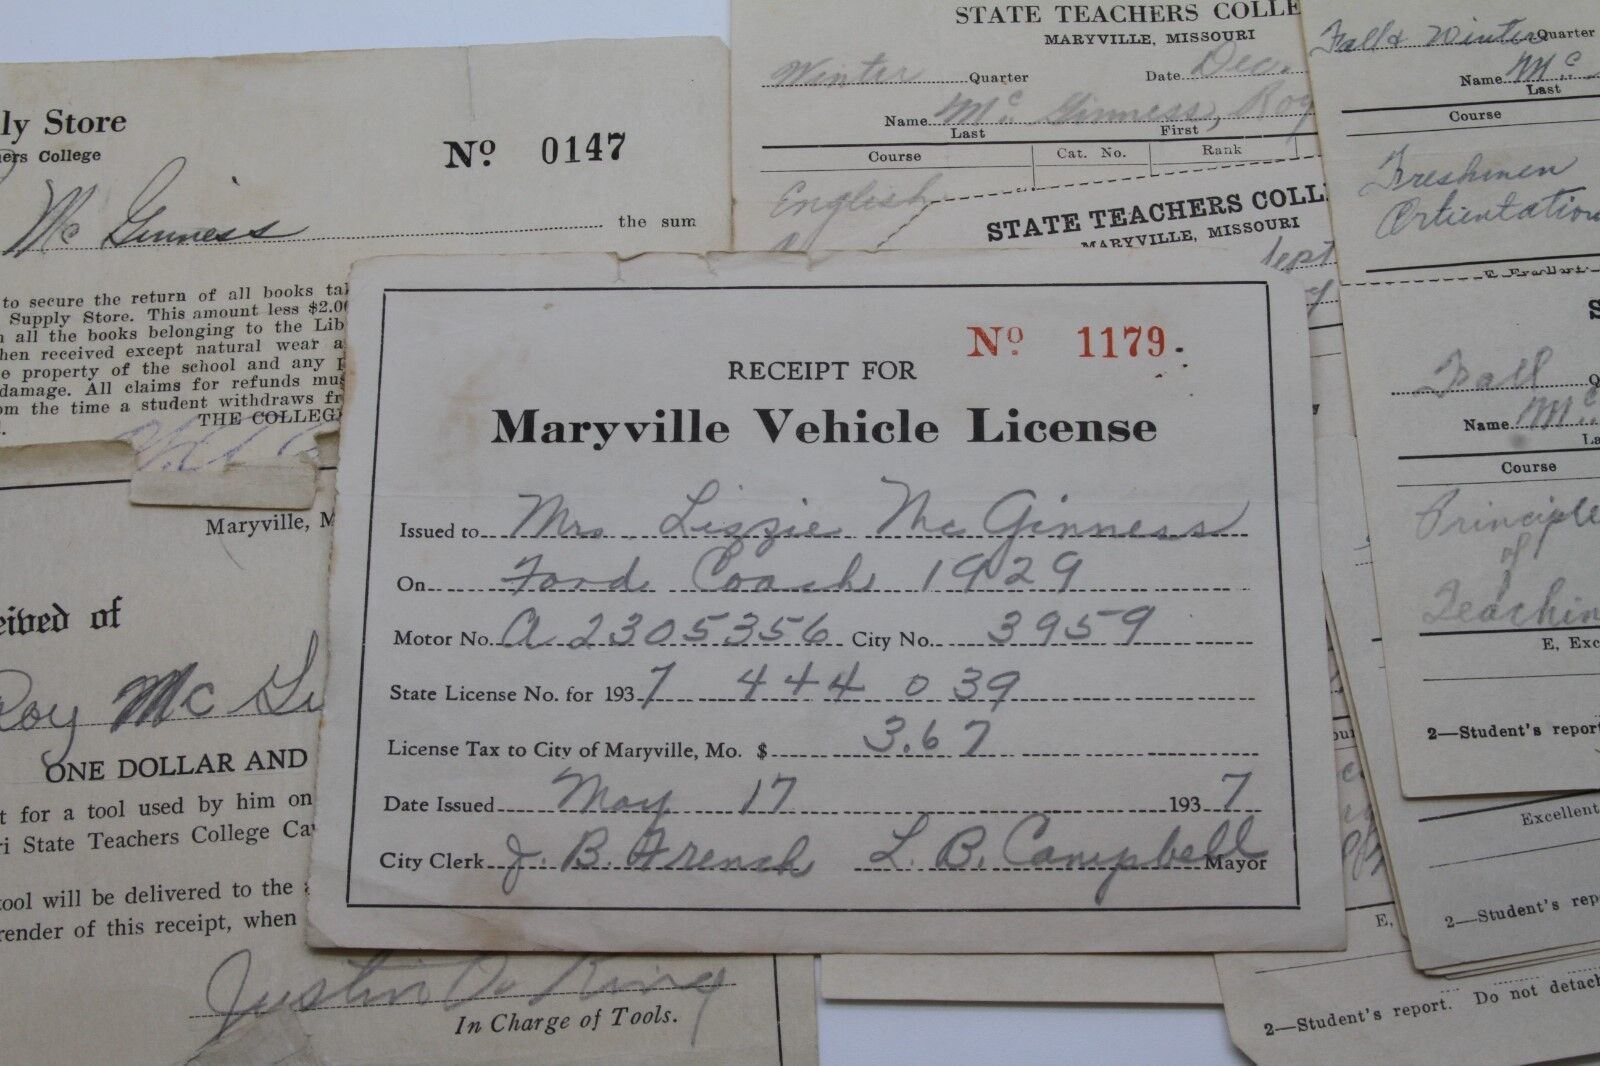 ly Store
ers College
Nº 0147
Mc Ginness the sum
to secure the return of all books
Supply Store. This amount less $2.00
all the books belonging to the Lib
hen received except natural wear a
e property of the school and any
damage. All claims for refunds mus
om the time a student withdraws fr
THE COLLEGE
Maryville, M
eived of
Roy Mc Gi
ONE DOLLAR AND
t for a tool used by him on
ri State Teachers College
tool will be delivered to the
render of this receipt, when
Justin King
In Charge of Tools.
STATE TEACHERS COLLE
MARYVILLE, MISSOURI
Winter Quarter Date Dec.
Name Mc Ginness, Roy
Last First
Course Cat. No. Rank
English
STATE TEACHERS COLL
MARYVILLE, MISSOURI
Sept
Fall & Winter Quarter
Name Mc
Last
Course
Freshmen
Ortientation
Fall Q
Name Mc
La
Course
Principle
of
Teachin
E, Exc
2—Student's report
Excellent
2—Student's rep
E,
2—Student's report. Do not detach
Nº 1179
RECEIPT FOR
Maryville Vehicle License
Issued to Mrs. Lizzie Mc Ginness
On Ford Coach 1929
Motor No. A 2305356 City No. 3959
State License No. for 1937 444 039
License Tax to City of Maryville, Mo. $ 3.67
Date Issued May 17 1937
City Clerk J. B. French L. B. Campbell Mayor